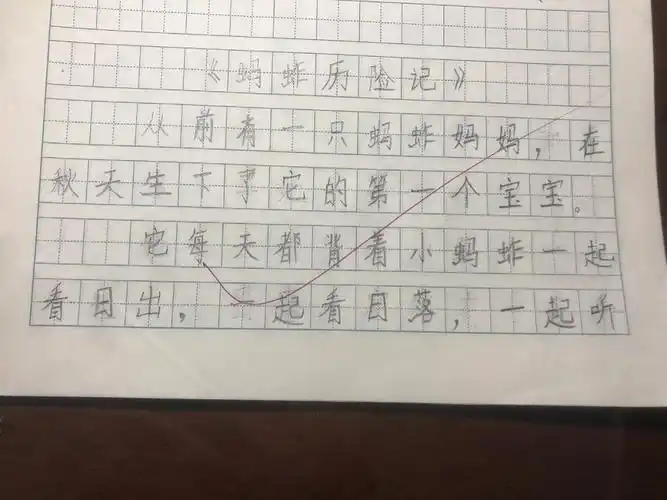 《蚂蚱历险记》
从前有一只蚂蚱妈妈，在
秋天生下了它的第一个宝宝。
它每天都背着小蚂蚱一起
看日出，一起看日落，一起听